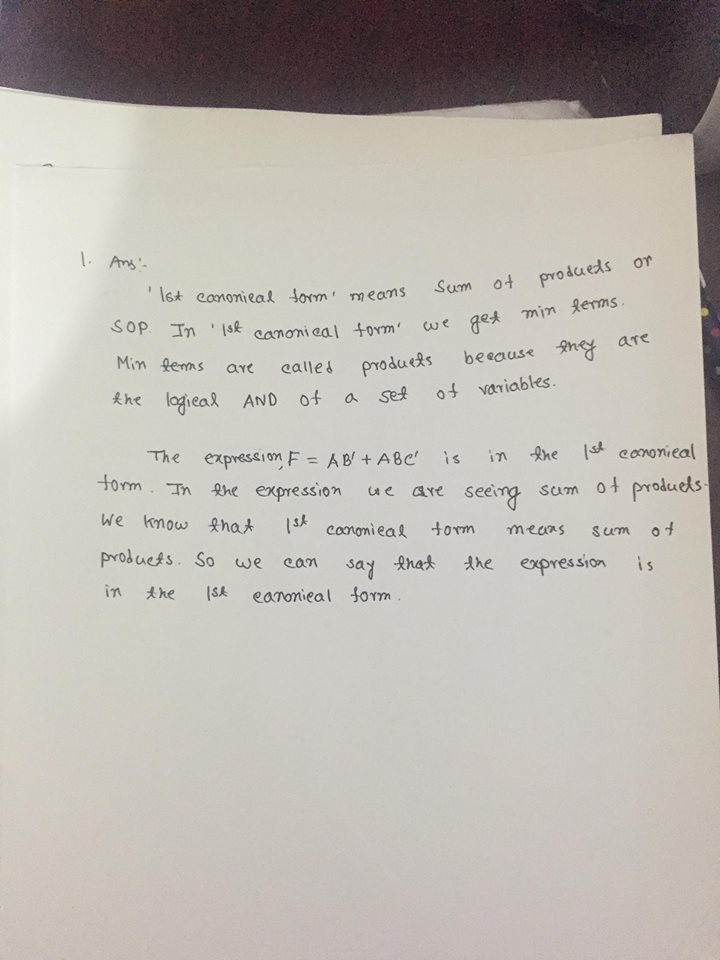 1. Ans:-
'1st canonical form' means Sum of products or
SOP. In '1st canonical form' we get min terms.
Min terms are called products because they are
the logical AND of a set of variables.
The expression, F = AB' + ABC' is in the 1st canonical
form. In the expression we are seeing sum of products.
We know that 1st canonical form means sum of
products. So we can say that the expression is
in the 1st canonical form.